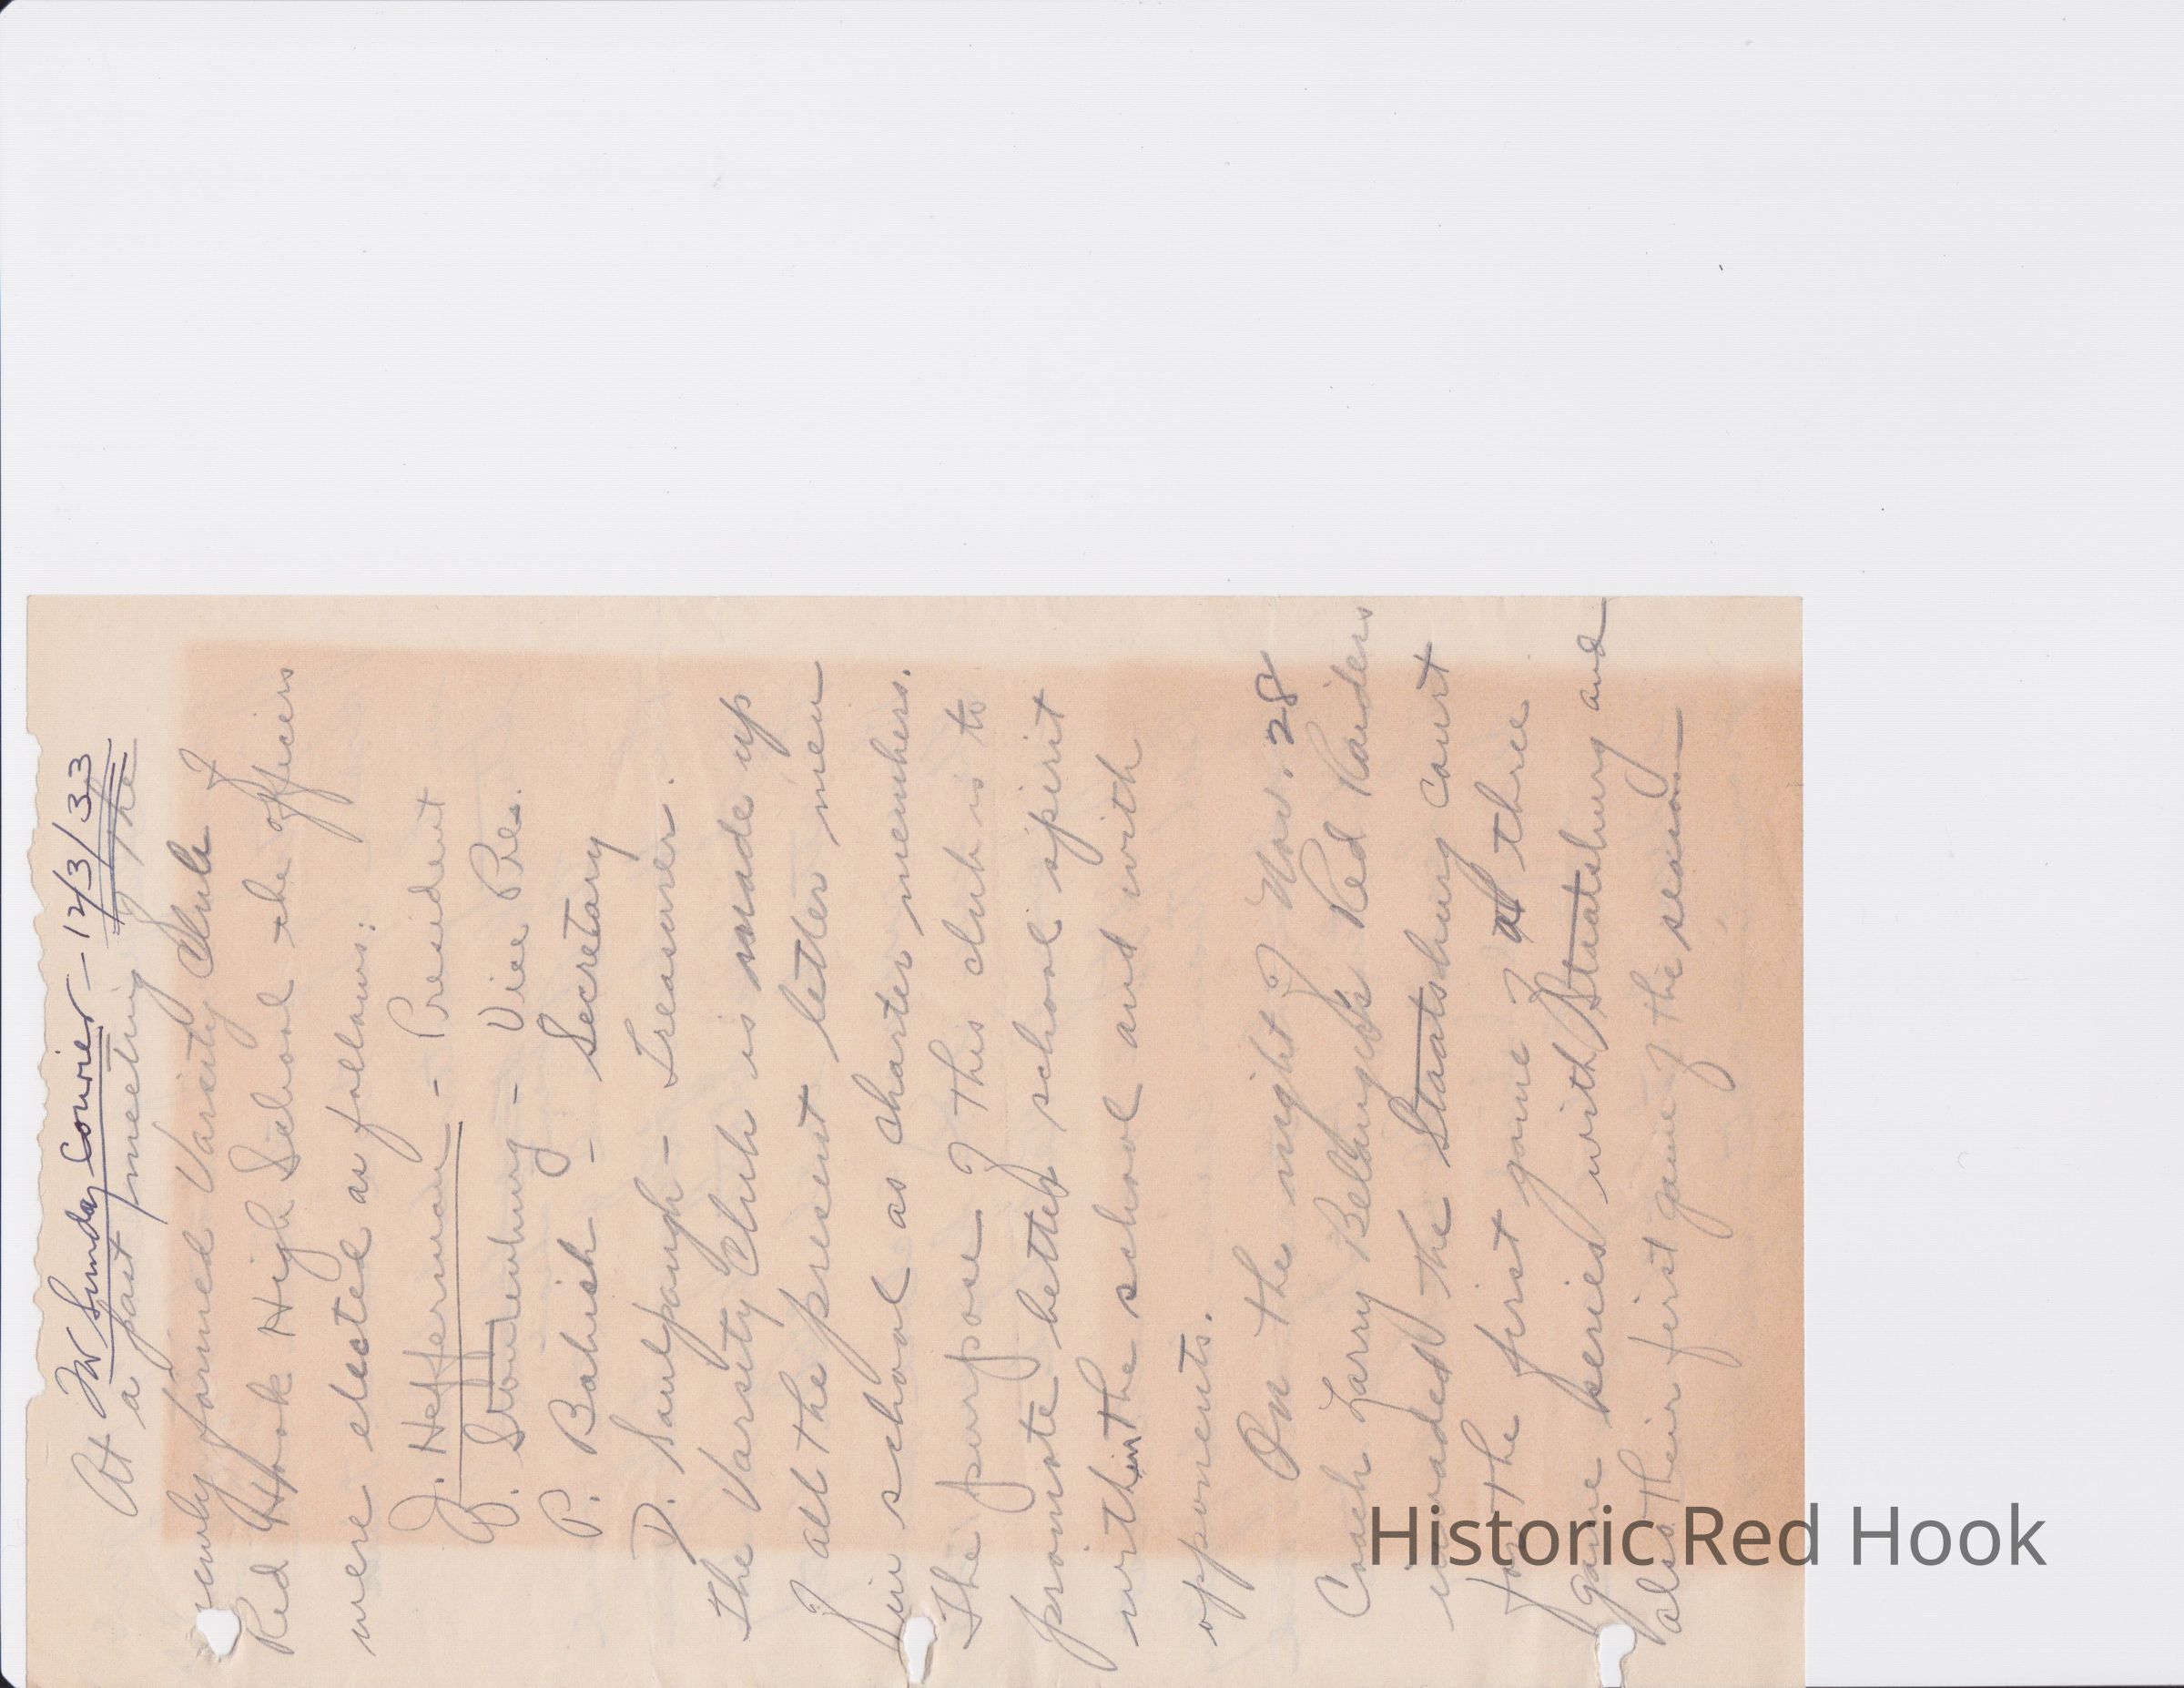 For Sunday Courier - 12/3/33
At a past meeting of the
newly formed Varsity Club of
Red Hook High School the officers
were elected as follows:
J. Heffernan - President
J. Stoutenburg - Vice Pres.
P. Babish - Secretary
D. Saulpaugh - Treasurer.
The Varsity Club is made up
of all the present letter men
in school as charter members.
The purpose of this club is to
promote better school spirit
within the school and with
opponents.
On the night of Nov. 28
Coach Larry Belanger's Red Raiders
invaded the Staatsburg court
for the first game of a three
game series with Staatsburg and
also their first game of the season
Historic Red Hook